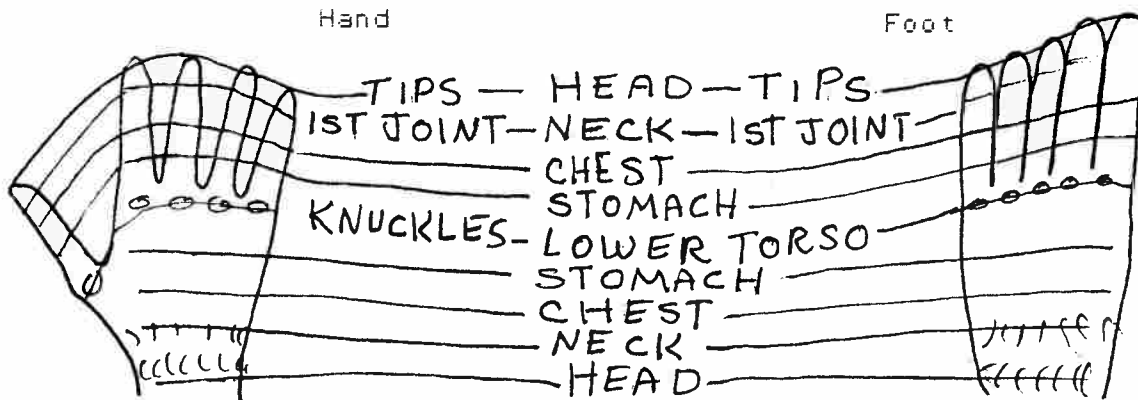 Hand Foot
TIPS — HEAD — TIPS
1ST JOINT — NECK — 1ST JOINT
CHEST
STOMACH
KNUCKLES - LOWER TORSO
STOMACH
CHEST
NECK
HEAD